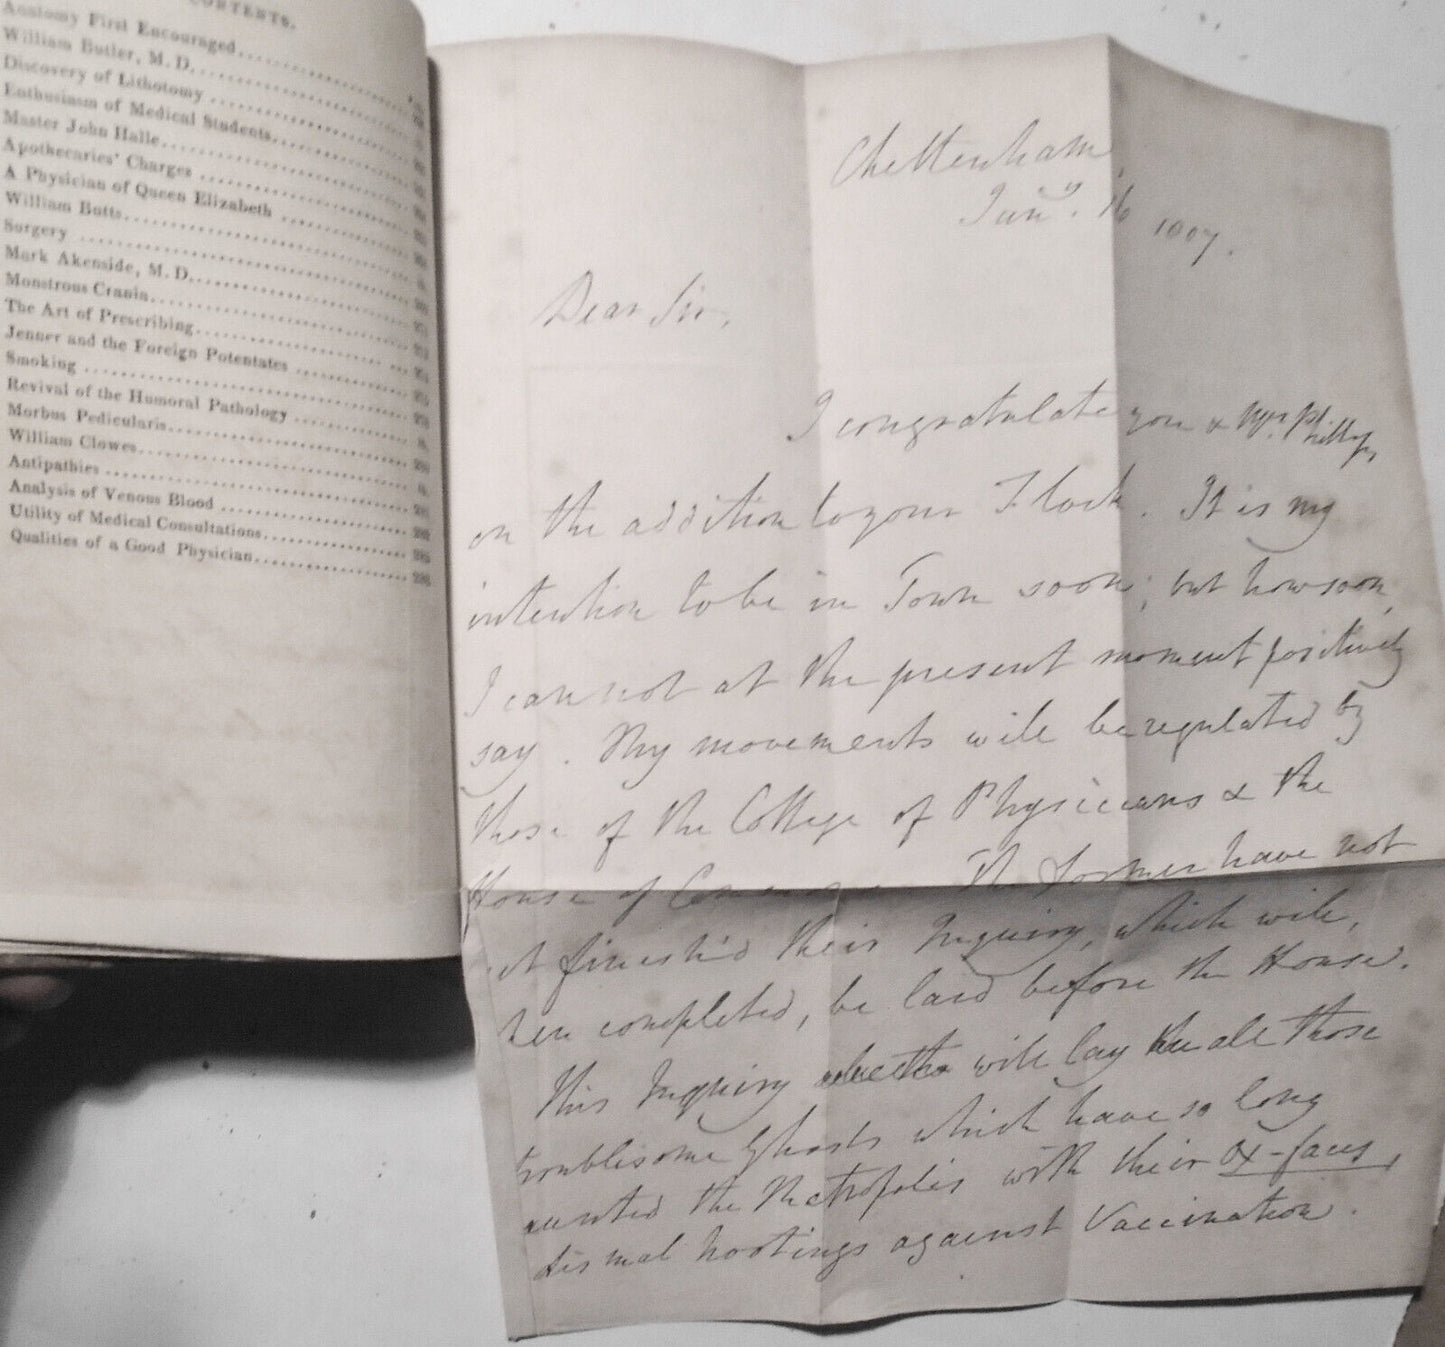 CONTENTS.
Anatomy First Encouraged
William Butler, M. D.
Discovery of Lithotomy
Enthusiasm of Medical Students
Master John Halle
Apothecaries' Charges
A Physician of Queen Elizabeth
William Butts
Surgery
Mark Akenside, M. D.
Monstrous Crania
The Art of Prescribing
Jenner and the Foreign Potentates
Smoking
Revival of the Humoral Pathology
Morbus Pedicularis
William Clowes
Antipathies
Analysis of Venous Blood
Utility of Medical Consultations
Qualities of a Good Physician
Cheltenham,
Jany. 16 1807.
Dear Sir,
I congratulate you & Mrs. Phillips
on the addition to your Flock. It is my
intention to be in Town soon; but how soon,
I can not at the present moment positively
say. My movements will be regulated by
those of the College of Physicians & the
House of Commons. The former have not
yet finish'd their Inquiry, which will,
when completed, be laid before the House.
This Inquiry will lay all those
troublesome Ghosts which have so long
haunted the Metropolis with their ox-faces,
dismal hootings against Vaccination.